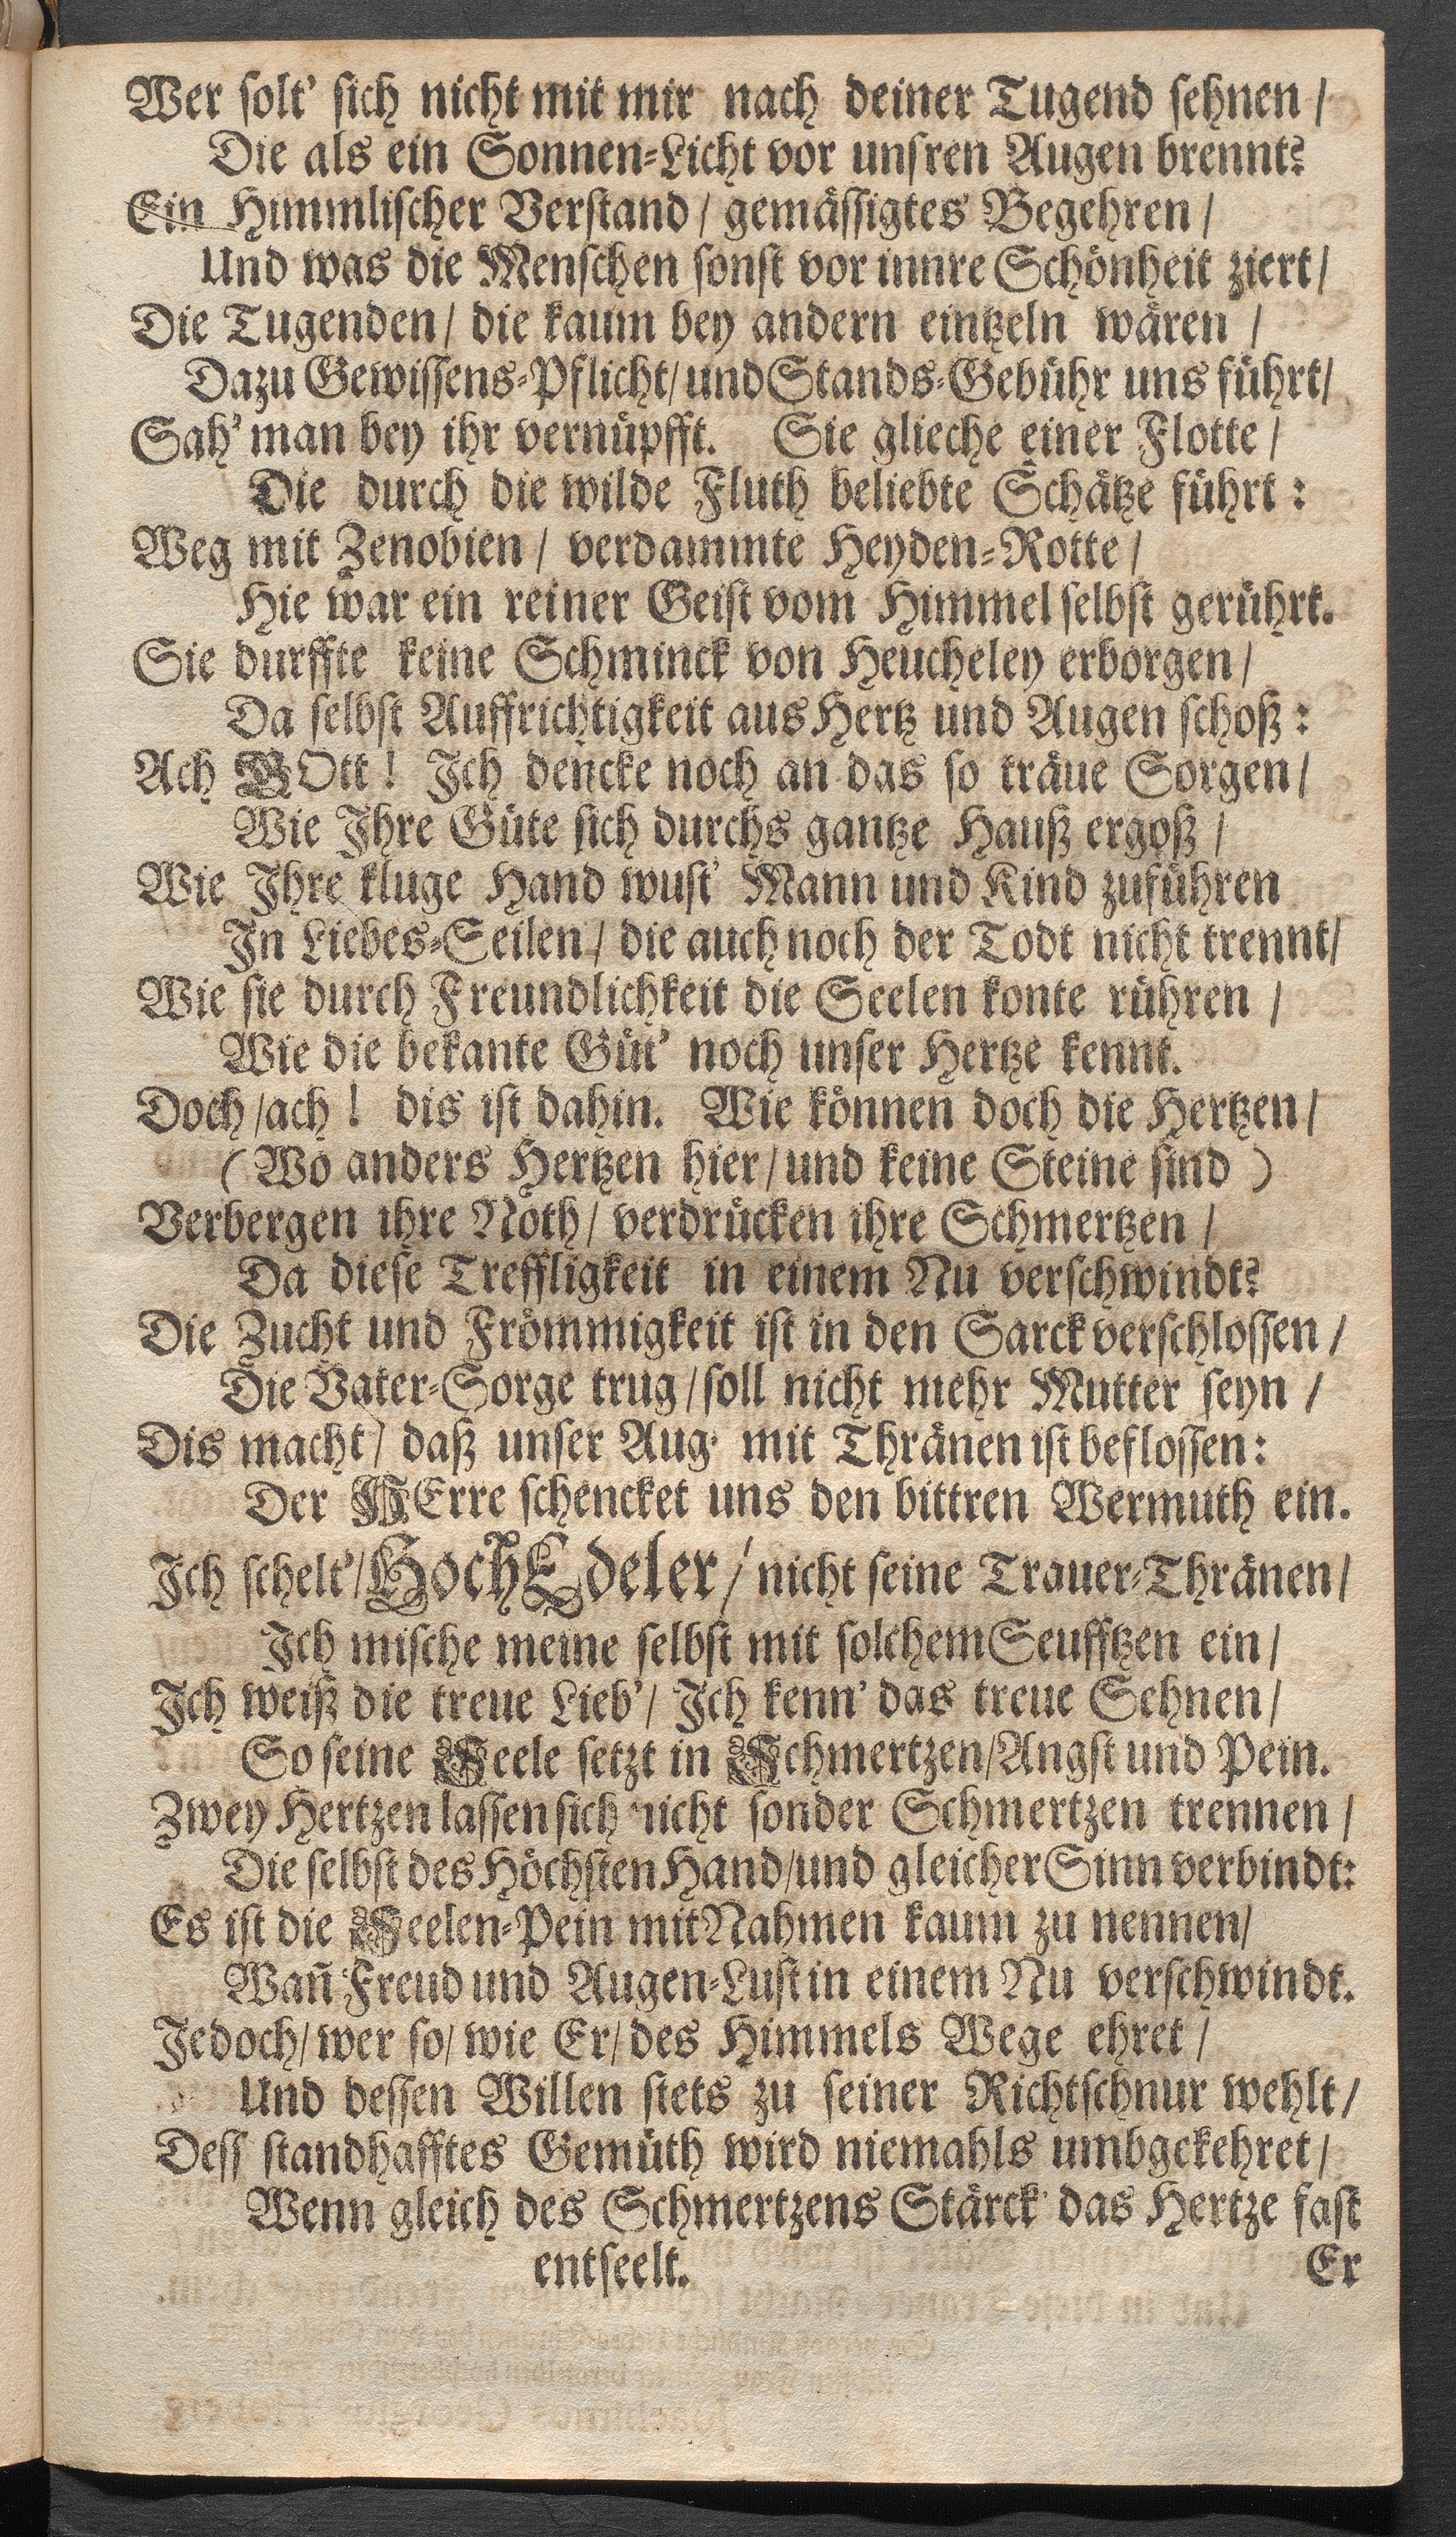 Wer ſolt' ſich nicht mit mir nach deiner Tugend ſehnen /
Die als ein Sonnen-Licht vor unſren Augen brennt?
Ein Himmliſcher Verſtand / gemäſſigtes Begehren /
Und was die Menſchen ſonſt vor innre Schönheit ziert /
Die Tugenden / die kaum bey andern eintzeln wären /
Dazu Gewiſſens-Pflicht / und Stands-Gebühr uns führt /
Sah' man bey ihr vernüpfft. Sie glieche einer Flotte /
Die durch die wilde Fluth beliebte Schätze führt :
Weg mit Zenobien / verdammte Heyden-Rotte /
Hie war ein reiner Geiſt vom Himmel ſelbſt gerührt.
Sie durffte keine Schminck von Heucheley erborgen /
Da ſelbſt Auffrichtigkeit aus Hertz und Augen ſchoß :
Ach GOtt ! Ich dencke noch an das ſo träue Sorgen /
Wie Ihre Güte ſich durchs gantze Hauß ergoß /
Wie Ihre kluge Hand wuſt' Mann und Kind zuführen
In Liebes-Seilen / die auch noch der Todt nicht trennt /
Wie ſie durch Freundlichkeit die Seelen konte rühren /
Wie die bekante Güt' noch unſer Hertze kennt.
Doch / ach ! dis iſt dahin. Wie können doch die Hertzen /
( Wo anders Hertzen hier / und keine Steine ſind )
Verbergen ihre Noth / verdrücken ihre Schmertzen /
Da dieſe Treffligkeit in einem Nu verſchwindt?
Die Zucht und Frömmigkeit iſt in den Sarck verſchloſſen /
Die Vater-Sorge trug / ſoll nicht mehr Mutter ſeyn /
Dis macht / daß unſer Aug' mit Thränen iſt befloſſen :
Der HErre ſchencket uns den bittren Wermuth ein.
Ich ſchelt' / HochEdeler / nicht ſeine Trauer-Thränen /
Ich miſche meine ſelbſt mit ſolchem Seufftzen ein /
Ich weiß die treue Lieb' / Ich kenn' das treue Sehnen /
So ſeine Seele ſetzt in Schmertzen / Angſt und Pein.
Zwey Hertzen laſſen ſich nicht ſonder Schmertzen trennen /
Die ſelbſt des Höchſten Hand / und gleicher Sinn verbindt :
Es iſt die Seelen-Pein mit Nahmen kaum zu nennen /
Wañ Freud und Augen-Luſt in einem Nu verſchwindt.
Jedoch / wer ſo / wie Er / des Himmels Wege ehret /
Und deſſen Willen ſtets zu ſeiner Richtſchnur wehlt /
Deſſ ſtandhafftes Gemüth wird niemahls umbgekehret /
Wenn gleich des Schmertzens Stärck' das Hertze faſt
entſeelt. Er